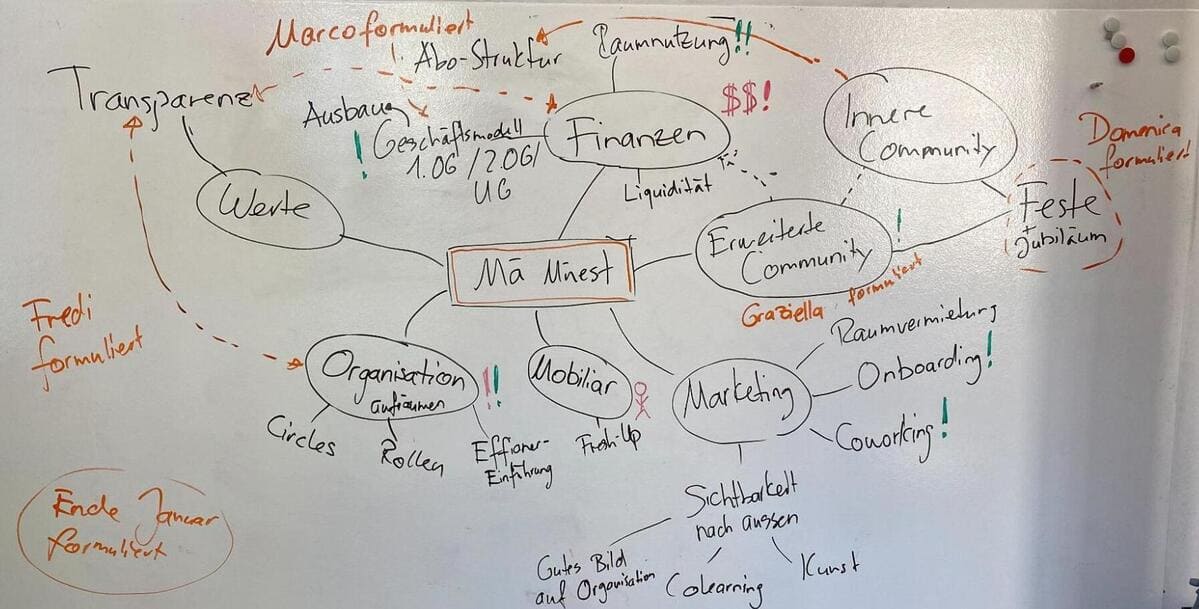 Marco formuliert
Raumnutzung!!
! Abo-Struktur
Transparenz
$$!
Ausbau
Innere
Community
Finanzen
! Geschäftsmodell
1.OG/2.OG/
UG
Domenica
formuliert
Liquidität
Werte
Feste
+
Jubiläum
Erweiterte
Community
!
Mā Minest
Graziella formuliert
Fredi
formuliert
Raumvermietung
Organisation
aufräumen
!!
Mobiliar
Marketing
Onboarding!
Circles
Rollen
Einführung
Fresh-Up
Coworking!
Sichtbarkeit
nach aussen
Ende Januar
formuliert
Gutes Bild
auf Organisation
Colearning
Kunst